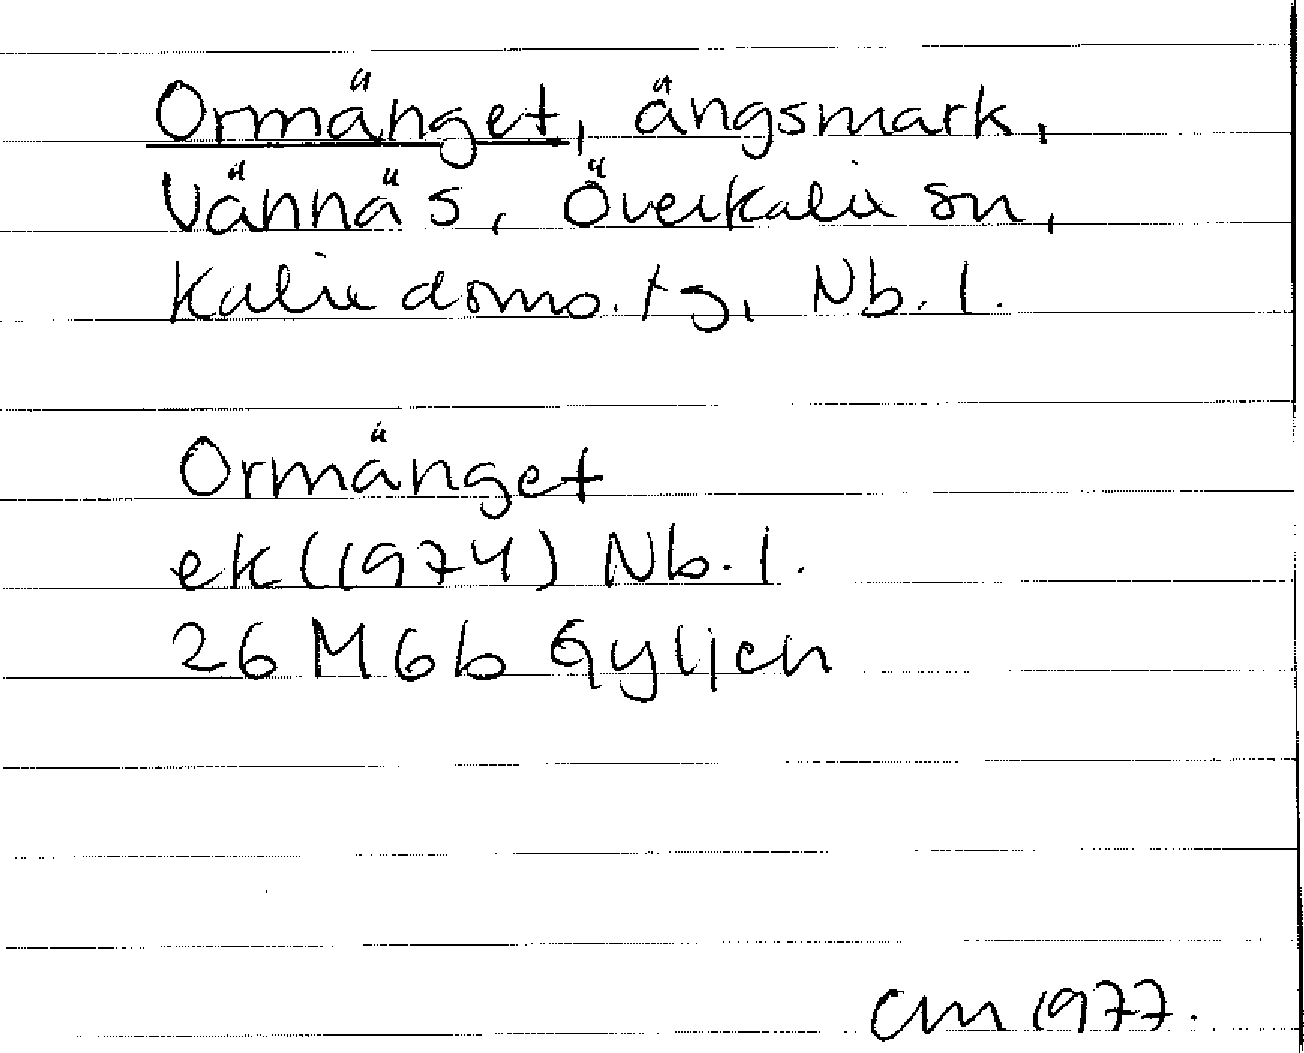 Ormänget, ängsmark,
Vännäs, Överkalix sn,
Kalix doms. tg, Nb. l.
Ormänget
ek (1974) Nb. l.
26 M 6 b Gyljen
CM 1977.